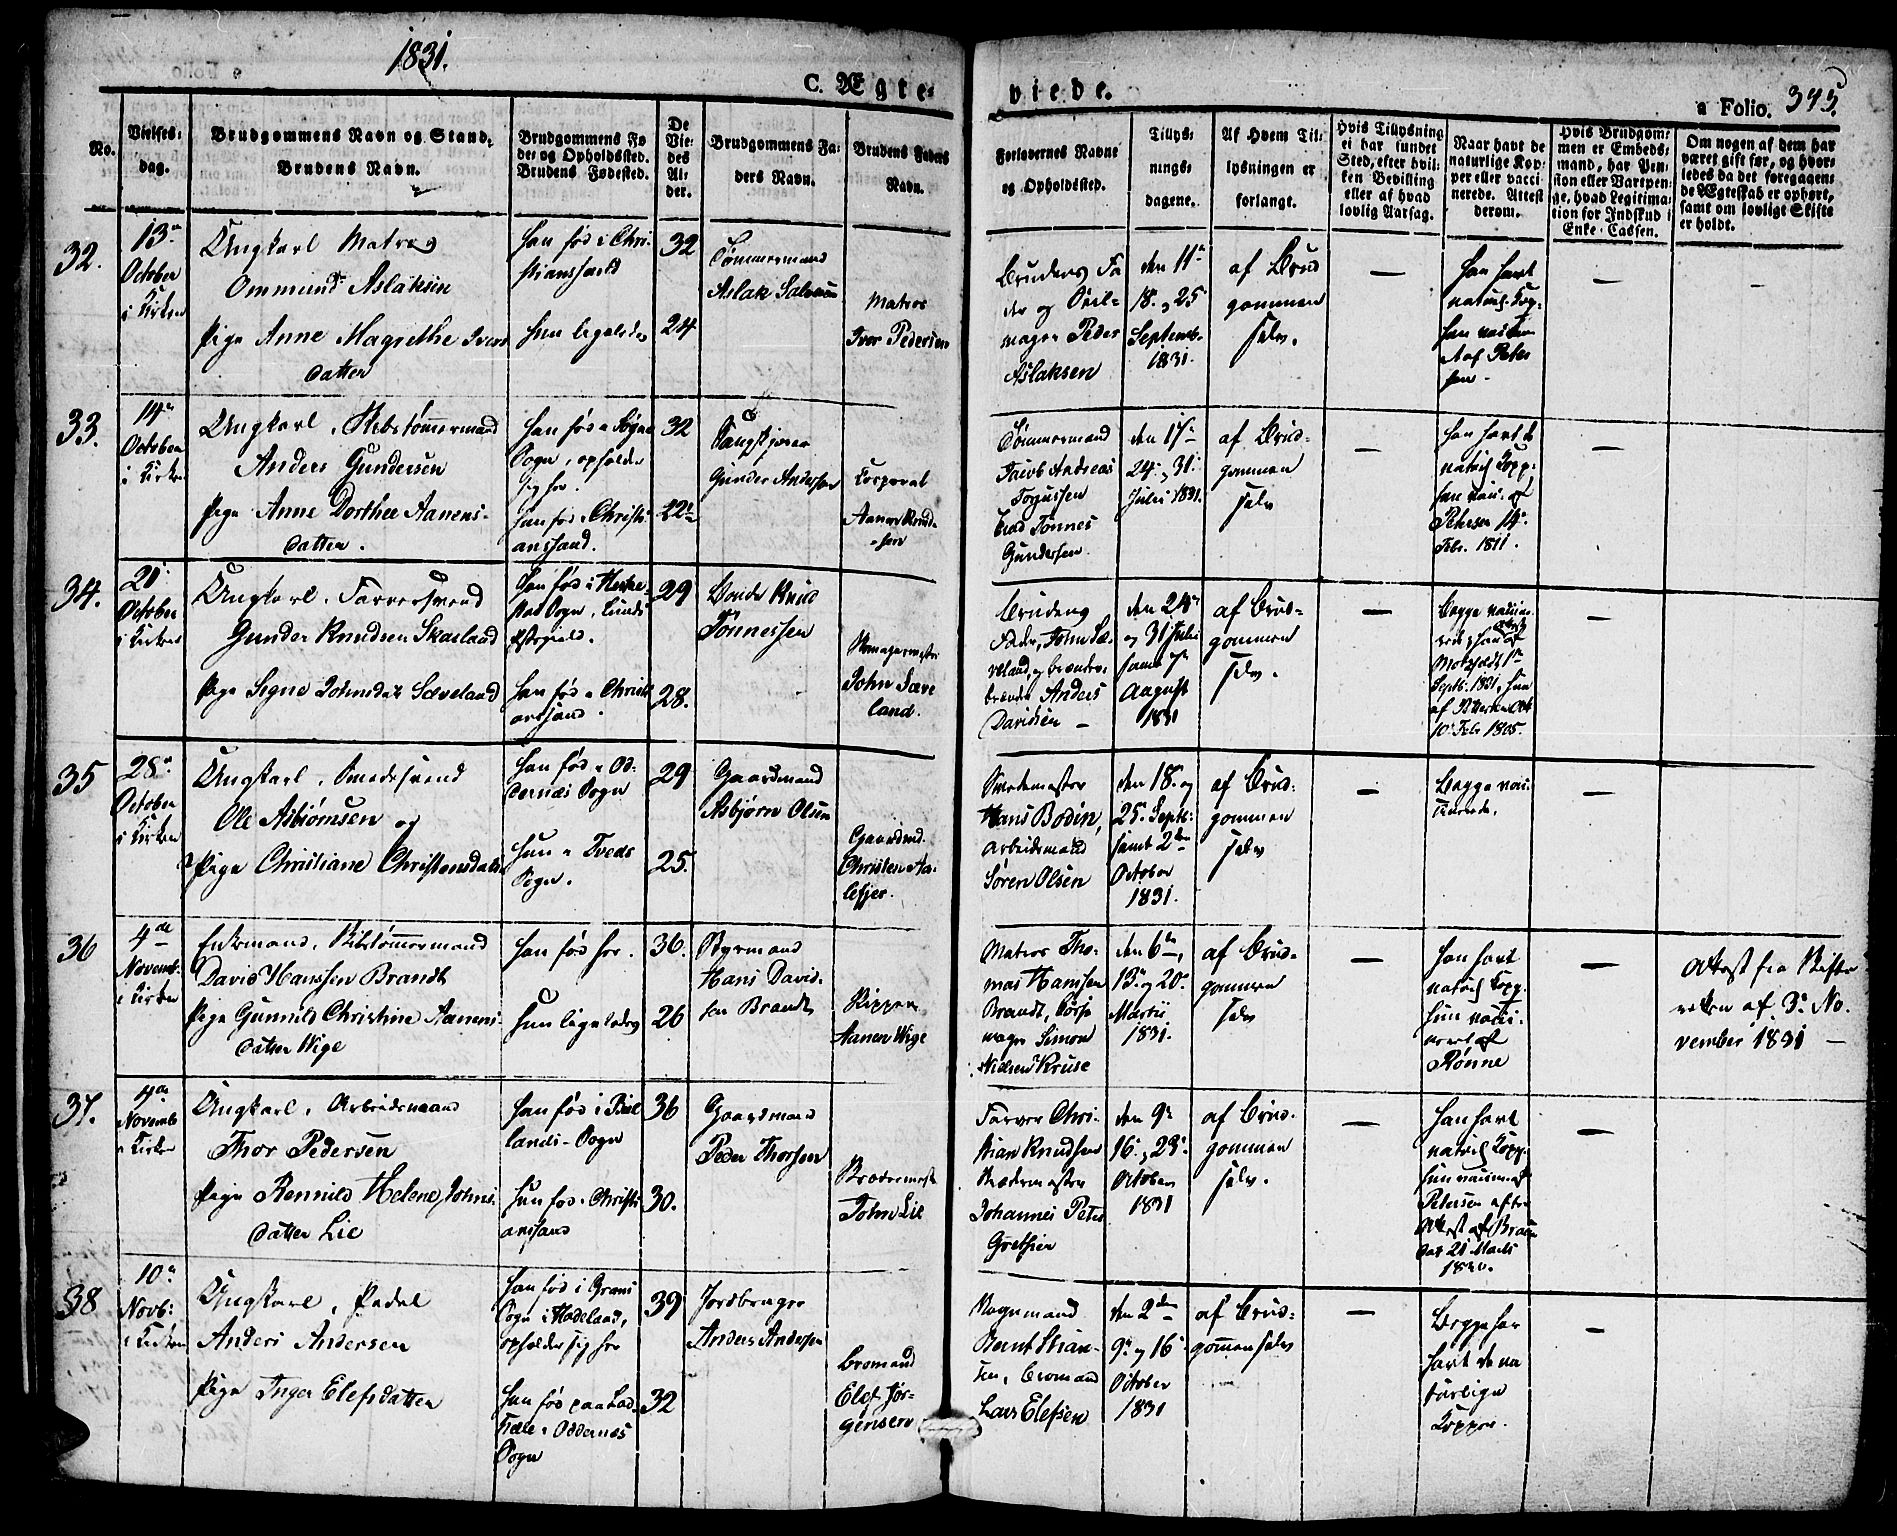 1831.
C. Ægte-
viede.
a Folio. 345.
No.
Vielses-
dag.
Brudgommens Navn og Stand.
Brudens Navn.
Brudgommens Fø
de- og Opholdssted.
Brudens Fødested.
De
Vie-
des
Al-
der.
Brudgommens Fa-
ders Navn.
Brudens Faders
Navn.
Forlovernes Navne
og Opholdssted.
Tillys-
nings-
dagene.
Af Hvem Til-
lysningen er
forlangt.
Hvis Tillysning
ei har fundet
Sted, efter hvil-
ken Bevilling
eller af hvad
lovlig Aarsag.
Naar havt de
naturlige Kop-
per eller vacci-
nerede. Attest
derom.
Hvis Brudgom-
men er Embeds-
mand, har Pen-
sion eller Vartpen-
ge, hvad Legitima-
tion for Indskud i
Enke-Cassen.
Om nogen af dem har
været gift før, og hvor-
ledes da det foregaaen-
de Ægteskab er ophørt,
samt om lovligt Skifte
er holdt.
32.
13de
October
i Kirken
Ungkarl Matros
Ommund Aslaksen
Pige Anne Magrethe Ivers
datter
han fød i Chri-
stianssand
hun ligeledes
32
24
Tømmermand
Aslak
Matros
Iver Pedersen
Brudens Fa
der og
mager Peder
Aslaksen
den 11te
18. og 25
Septemb.
1831.
af Brud
gommen
selv.
—
han havt
naturl. Kop.
hun vaccin
—
33.
14de
October
i Kirken
Ungkarl, Skibstømmermand
Anders Gundersen
Pige Anne Dorthea Aanens-
datter.
han fød i Søgne
Sogn, opholder
sig her.
hun fød i Christi-
anssand.
32
22
Gunder Andersen
Corporal
Aanen Knud-
sen
Tømmermand
Jacob Andreas
Torjussen
Tønnes
Gundersen
den 17de
24. og 31.
Julii 1831.
af Brud-
gommen
selv
—
han havt de
naturl. Kopp.
hun vacc. af
Petersen 14.
Feb. 1811.
—
34.
21
October
i Kirken
Ungkarl, Farversvend
Gunder Knudsen Skaeland
Pige Segne Johnsdat. Sæveland
han fød i Heske-
stad Sogn, Lunds
Præstegield.
hun fød i Christi
anssand.
29
28.
Bonde Knud
Tönnessen
John Sæve
land.
Brudens
Fader, John Sæ-
veland, og
Anders
Davidsen —
den 24de
og 31 Julii
samt 7de
August
1831
af Brud-
gommen
selv.
—
Begge vacci-
Septb. 1831, hun
10 Feb 1805.
—
35
28de
October
i Kirken
Ungkarl, Smedesvend
Ole Asbiörnsen og
Pige Christiane Christensdatr
han fød i Od-
dernæs Sogn
hun i Tveds
Sogn.
29
25.
Gaardmand
Asbjørn Olsen
Gaardmd.
Christen Aa-
lefjer.
Smedemester
Hans Bodin,
Arbeidsmand
Søren Olsen
den 18. og
25. Septb:
samt 2den
October
1831.
af Brud-
gommen
selv
—
Begge vacci-
nerede.
—
36
4de
Novemb.
i Kirken
Enkemand, Skibstømmermand
David Hanssen Brandt
Pige Gunnild Christine Aanens-
datter Wige
han fød her.
hun ligeledes
36.
26
Styrmand
Hans David-
sen Brandt
Skipper
Aanen Wige
Matros Tho-
mas Hanssen
Brandt, Børse
mager Simon
Nielsen Kruse
den 6te,
13. og 20.
Martii
1831.
af Brud-
gommen
selv
—
han havt
naturl. Kopp.
hun vacci-
neret af
Rønne
—
Attest fra Skifte
retten af 3. No-
vember 1831 —
37.
4de
Novemb
i Kirken
Ungkarl, Arbeidsmand
Thor Pedersen
Pige Rennild Helene Johns-
datter Lie
han fød i Biel
lands-Sogn
hun fød i Christi
anssand
36
30.
Gaardmand
Peder Thorsen
John Lie
Farver Chri-
stian Knudsen
Johannes Peter
Grethsen
den 9de
16. og 23.
October
1831
af Brud-
gommen
selv.
—
han havt
naturl. Kopp.
hun vaccin af
Petersen efter
Attest af
dat 21 Marts
—
38
10de
Novb:
i Kirken
Ungkarl,
Anders Andersen
Pige Inger Elefsdatter
han fød i Grans
Sogn i Hadeland,
opholder sig her
hun fød paa Lad-
Oddernes
Sogn
39
32
Jordbruger
Anders Andersen
Bromand
Elef Jör-
gensen
Vognmand
Bernt Stian-
sen, Bromand
Lars Elefsen
den 2den
9. og 16
October
1831
af Brud-
gommen selv
—
Begge har
havt de na
turlige
Kopper.
—